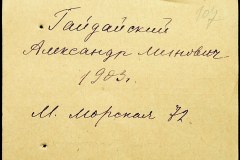 107
Гайдайский
Александр Минович
1903г.
М. Морская 72.